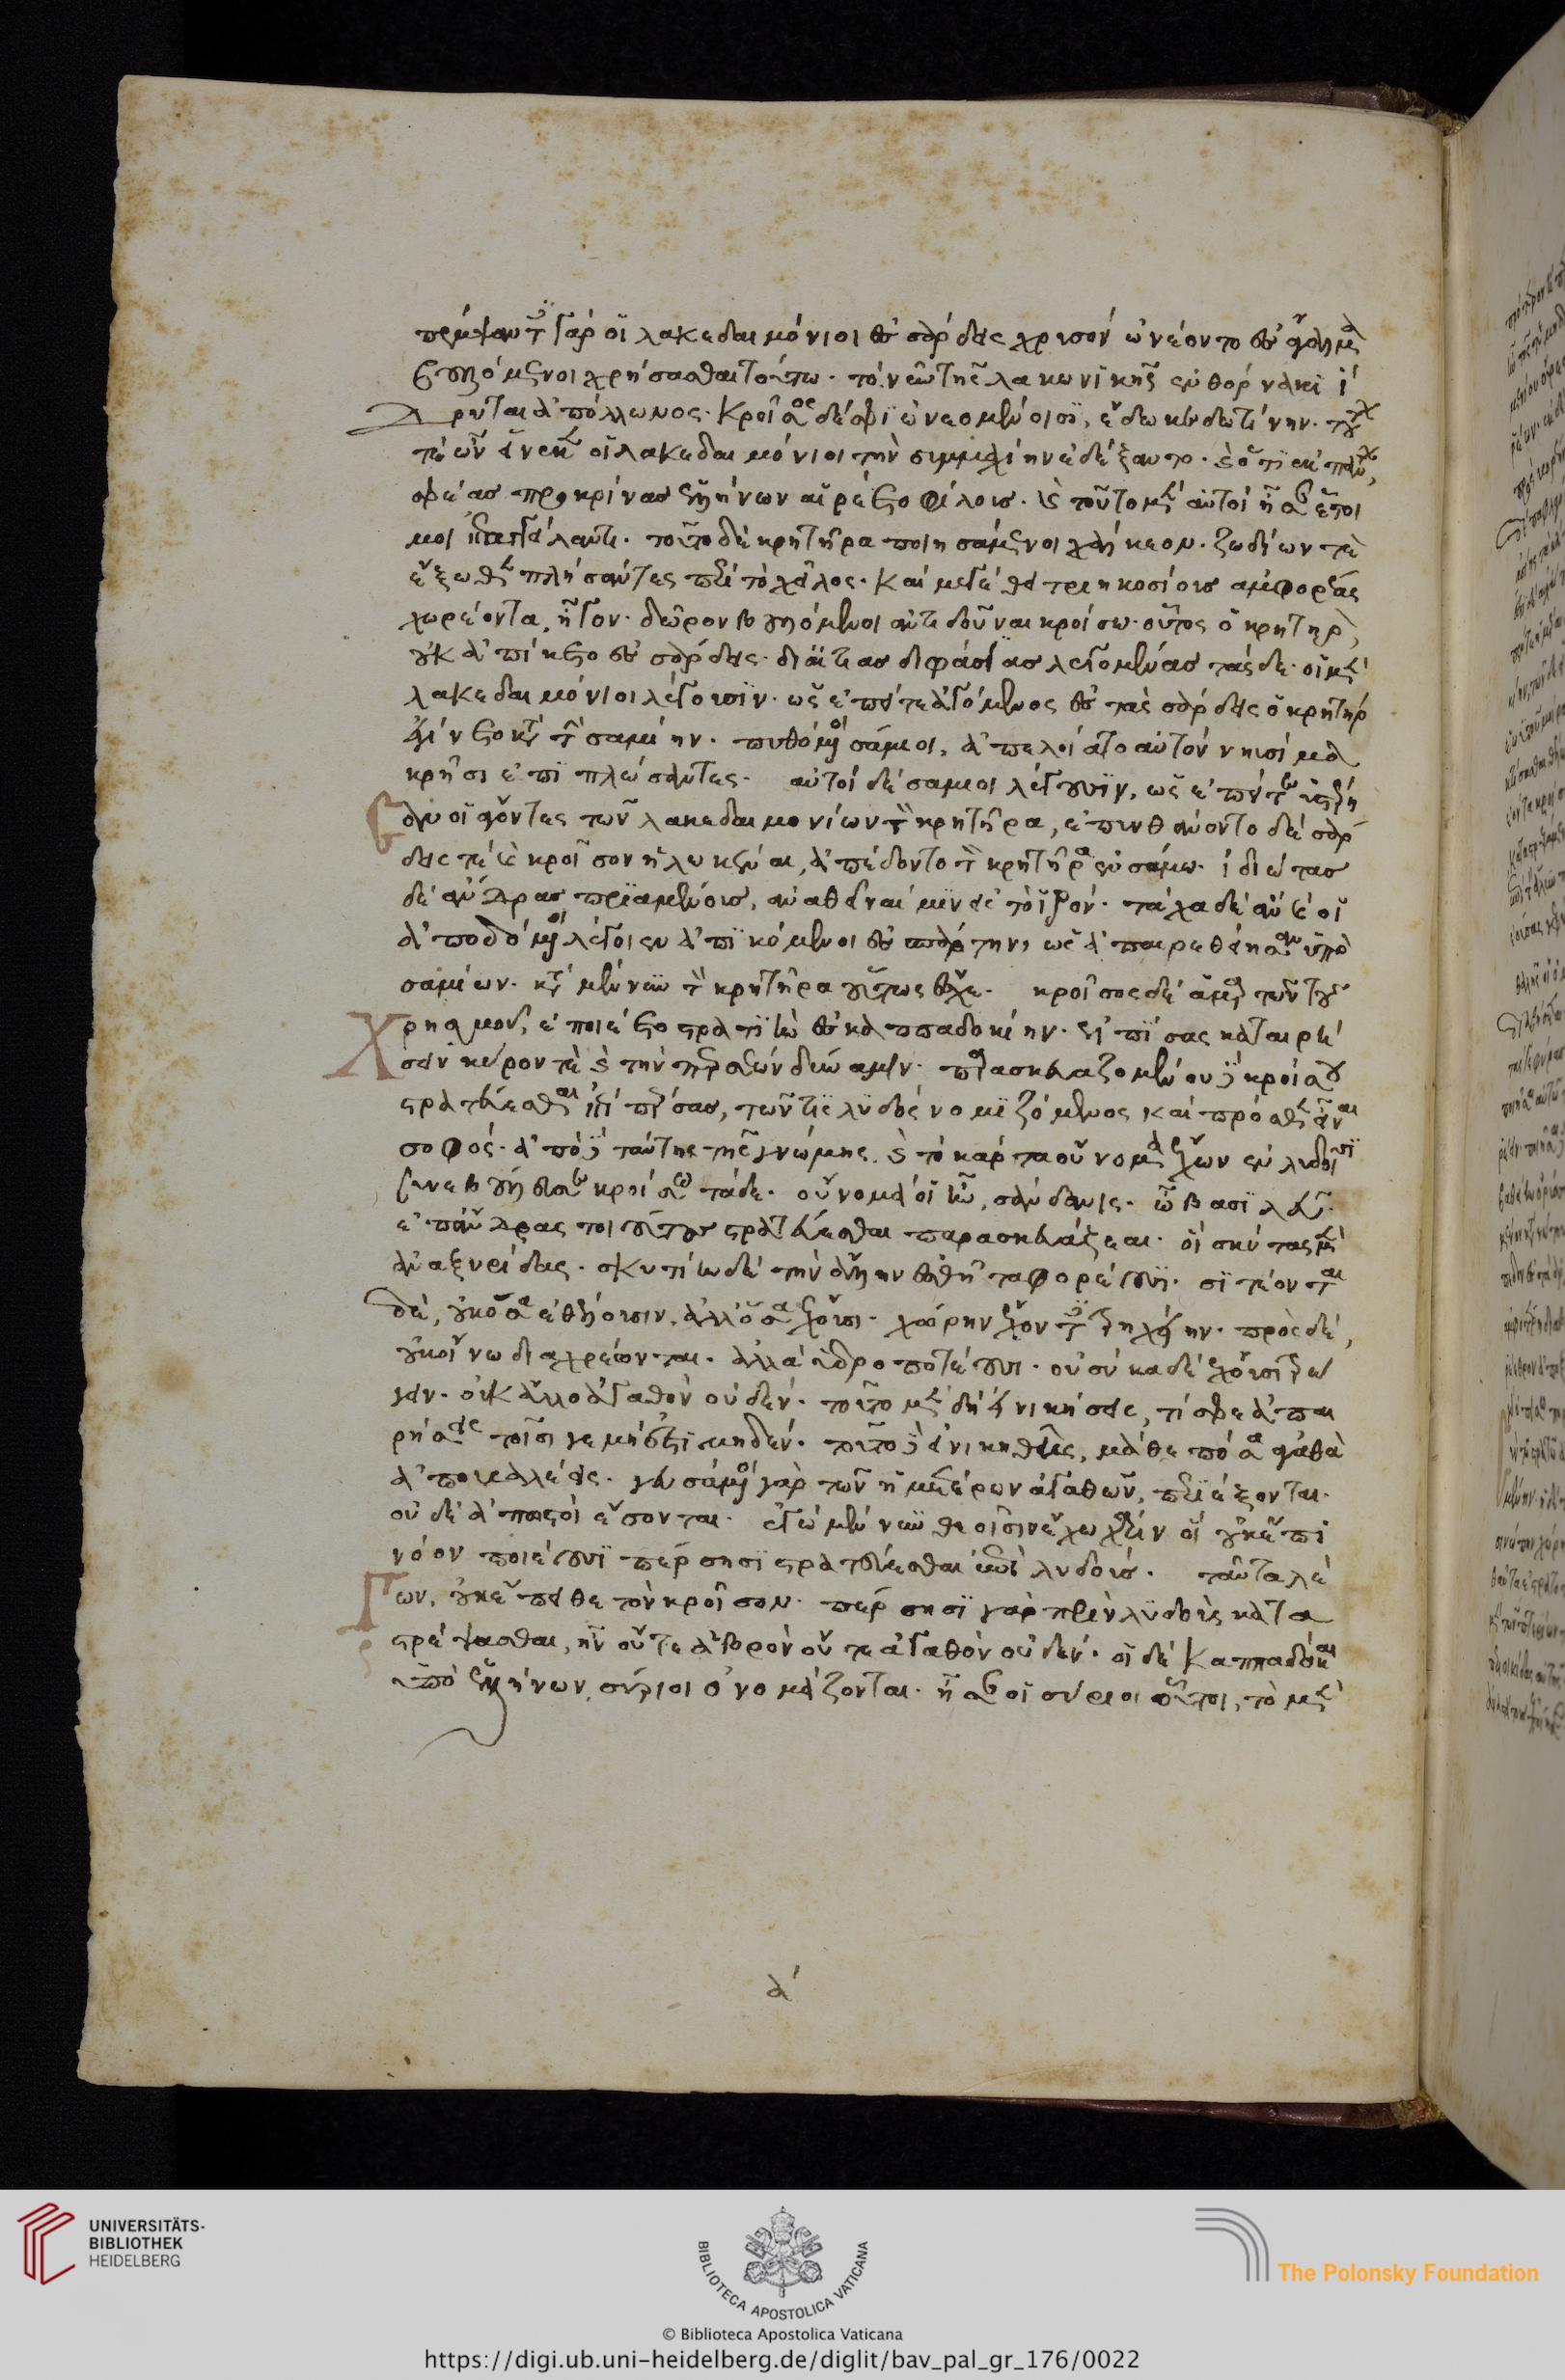 πέμψαντες γὰρ οἱ λακεδαιμόνιοι ἐς σάρδεις χρυσὸν ὠνέοντο ἐς ἄγαλμα
βουλόμενοι χρήσασθαι τούτω. τὸ νῦν τῆς λακωνικῆς ἐν θόρνακι ἵ
δρυται ἀπόλλωνος. Κροῖσος δέ σφι ὠνεομένοισι, ἔδωκε δωτίνην. τουτ
τέων εἵνεκεν οἱ λακεδαιμόνιοι τὴν συμμαχίην ἐδέξαντο. καὶ ὅτι ἐκ πάντων
σφέας προκρίνας ἑλλήνων αἱρέετο φίλους. καὶ τοῦτο μὲν αὐτοὶ ἦσαν ἕτοι
μοι ἐπαγγείλαντι. τοῦτο δὲ κρητῆρα ποιησάμενοι χάλκεον. ζωδίων τὲ
ἔξωθεν πλήσαντες περὶ τὸ χεῖλος. Καὶ μεγάθει τριηκοσίους ἀμφορέας
χωρέοντα, ἦγον. δῶρον βουλόμενοι ἀντιδοῦναι κροίσω. οὗτος ὁ κρητὴρ,
οὐκ ἀπίκετο ἐς σάρδεις. δι' αἰτίας διφασίας λεγομένας τάσδε. οἱ μὲν
λακεδαιμόνιοι λέγουσιν. ὡς ἐπείτε ἀγόμενος ἐς τὰς σάρδεις ὁ κρητὴρ
ἐγίνετο κατὰ τὴν σαμίην. πυθόμενοι σάμιοι, ἀπελοίατο αὐτὸν νηυσὶ μα
κρῇσι ἐπιπλεύσαντες. αὐτοὶ δὲ σάμιοι λέγουσιν, ὡς ἐπείτε ὑστέρη
σαν οἱ ἄγοντες τῶν λακεδαιμονίων τὸν κρητῆρα, ἐπυνθάνοντο δὲ σάρ
δεις τὲ καὶ κροῖσον ἡλωκέναι, ἀπέδοντο τὸν κρητῆρα ἐν σάμω. ἰδιώτας
δὲ ἄνδρας πριαμένους, ἀναθεῖναί μιν ἐς τὸ ἱρόν. τάχα δὲ ἂν καὶ οἱ
ἀποδόμενοι λέγοιεν ἀπικόμενοι ἐς σπάρτην, ὡς ἀπαιρεθείησαν ὑπὸ
σαμίων. κατὰ μέν νυν τὸν κρητῆρα οὕτως ἔσχε. κροῖσος δὲ ἁμαρτὼν τοῦ
χρησμοῦ, ἐποιέετο στρατιὴν ἐς καππαδοκίην. ἐλπίσας καταιρή
σειν κῦρον τὲ καὶ τὴν περσέων δύναμιν. παρασκευαζομένου δὲ κροίσου
στρατεύεσθαι ἐπὶ πέρσας, τῶν τις λυδῶν νομιζόμενος καὶ πρόσθεν εἶναι
σοφός. ἀπὸ δὲ ταύτης τῆς γνώμης. καὶ τὸ κάρτα οὔνομα ἔχων ἐν λυδοῖσι
συνεβούλευσεν κροίσω τάδε. οὔνομά οἱ ἦν, σάνδανις. ὦ βασιλεῦ.
ἐπ' ἄνδρας τοιούτους στρατεύεσθαι παρασκευάζεαι. οἳ σκυτίνας μὲν
ἀναξυρίδας. σκυτίνην δὲ τὴν ἄλλην ἐσθῆτα φορέουσι. σιτέονται
δὲ, οὐκ ὅσα ἐθέλουσιν. ἀλλ' ὅσα ἔχουσι. χώρην ἔχοντες τρηχέην. πρὸς δὲ,
οὐκ οἴνω διαχρέωνται. ἀλλὰ ὑδροποτέουσι. οὐ σῦκα δὲ ἔχουσι τρώ
γειν. οὐκ ἄλλο ἀγαθὸν οὐδέν. τοῦτο μὲν δὴ εἰ νικήσεις, τί σφε ἀπαι
ρήσεις τοῖσί γε μή ἐστι μηδέν. τοῦτο δὲ εἰ νικηθεῖς, μάθε πόσα ἀγαθὰ
ἀποβαλέεις. γευσάμενοι γὰρ τῶν ἡμετέρων ἀγαθῶν, περιέξονται.
οὐδὲ ἀπωστοὶ ἔσονται. ἐγὼ μέν νυν θεοῖσιν ἔχω χάριν οἳ οὐκ ἐπὶ
νόον ποιέουσι πέρσησι στρατεύεσθαι ἐπὶ λυδούς. ταῦτα λέ
γων, οὐκ ἔπειθε τὸν κροῖσον. πέρσησι γὰρ πρὶν λυδοὺς κατα
στρέψασθαι, ἦν οὔτε ἁβρὸν οὔτε ἀγαθὸν οὐδέν. οἱ δὲ Καππαδόκαι
ὑπὸ ἑλλήνων σύριοι ὀνομάζονται. ἦσαν οἱ σύριοι οὗτοι, τὸ μὲν
α΄
UNIVERSITÄTS-
BIBLIOTHEK
HEIDELBERG
BIBLIOTECA APOSTOLICA VATICANA
The Polonsky Foundation
© Biblioteca Apostolica Vaticana
https://digi.ub.uni-heidelberg.de/diglit/bav_pal_gr_176/0022